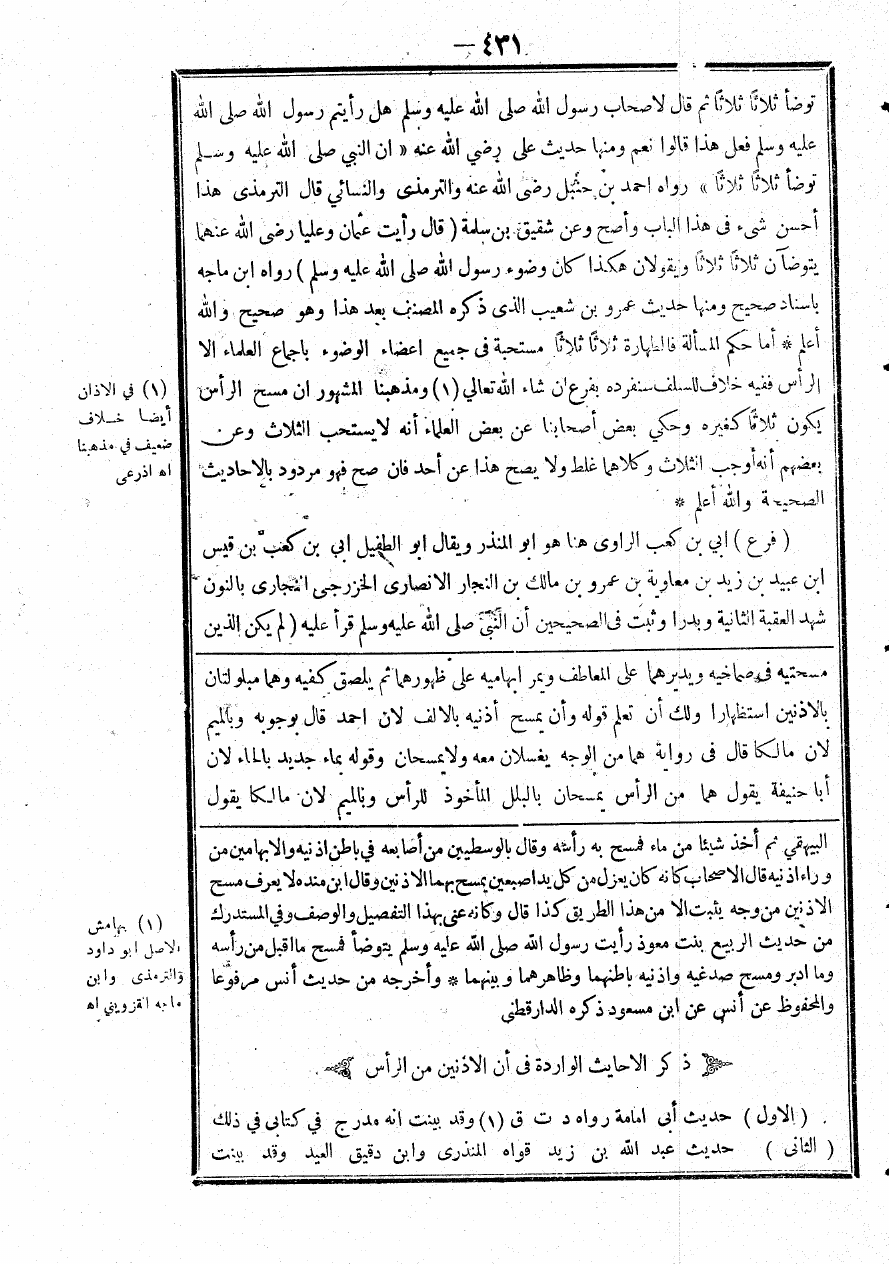 — ٤٣١
توضأ ثلاثًا ثلاثًا ثم قال لاصحاب رسول الله صلى الله عليه وسلم هل رأيتم رسول الله صلى الله
عليه وسلم فعل هذا قالوا نعم ومنها حديث على رضي الله عنه « ان النبي صلى الله عليه وسلم
توضأ ثلاثًا ثلاثًا » رواه احمد بن حنبل رضى الله عنه والترمذى والنسائي قال الترمذى هذا
أحسن شىء فى هذا الباب وأصح وعن شقيق بن سلمة ( قال رأيت عثمان وعليا رضى الله عنهما
يتوضآن ثلاثًا ثلاثًا ويقولان هكذا كان وضوء رسول الله صلى الله عليه وسلم ) رواه ابن ماجه
باسناد صحيح ومنها حديث عمرو بن شعيب الذى ذكره المصنف بعد هذا وهو صحيح والله
أعلم * أما حكم المسألة فالطهارة ثلاثًا ثلاثًا مستحبة فى جميع اعضاء الوضوء باجماع العلماء الا
الرأس ففيه خلاف للسلف سنفرده بفرع ان شاء الله تعالي (١) ومذهبنا المشهور ان مسح الرأس
يكون ثلاثًا كغيره وحكي بعض أصحابنا عن بعض العلماء أنه لا يستحب الثلاث وعن
بعضهم أنه أوجب الثلاث وكلاهما غلط ولا يصح هذا عن أحد فان صح فهو مردود بالاحاديث
الصحيحة والله أعلم *
( فرع ) ابي بن كعب الراوى هنا هو ابو المنذر ويقال ابو الطفيل ابي بن كعب بن قيس
ابن عبيد بن زيد بن معاوية بن عمرو بن مالك بن النجار الانصارى الخزرجى النجارى بالنون
شهد العقبة الثانية وبدرا وثبت فى الصحيحين أن النبي صلى الله عليه وسلم قرأ عليه ( لم يكن الذين
(١) في الاذان
أيضا خلاف
ضعيف في مذهبنا
اه اذرعى
مسحتيه فى صماخيه ويديرهما على المعاطف ويمر ابهاميه على ظهورهما ثم يلصق كفيه وهما مبلولتان
بالاذنين استظهارا ولك أن تعلم قوله وأن يمسح أذنيه بالالف لان احمد قال بوجوبه وبالميم
لان مالكا قال فى رواية هما من الوجه يغسلان معه ولا يمسحان وقوله بماء جديد بالحاء لان
أبا حنيفة يقول هما من الرأس يمسحان بالبلل المأخوذ للرأس وبالميم لان مالكا يقول
البيهقي ثم أخذ شيئا من ماء فمسح به رأسه وقال بالوسطيين من أصابعه في باطن اذنيه والابهامين من
وراء اذنيه قال الاصحاب كانه كان يعزل من كل يد اصبعين يمسح بهما الاذنين وقال ابن منده لا يعرف مسح
الاذنين من وجه يثبت الا من هذا الطريق كذا قال وكانه عنى بهذا التفصيل والوصف وفي المستدرك
من حديث الربيع بنت معوذ رأيت رسول الله صلى الله عليه وسلم يتوضأ فمسح ما اقبل من رأسه
وما ادبر ومسح صدغيه واذنيه باطنهما وظاهرهما وبينهما * وأخرجه من حديث أنس مرفوعا
والمحفوظ عن أنس عن ابن مسعود ذكره الدارقطنى
(١) بهامش
الاصل ابو داود
والترمذى وابن
ماجه القزويني اه
ذكر الاحايث الواردة فى أن الاذنين من الرأس
( الاول ) حديث أبى امامة رواه د ت ق (١) وقد بينت انه مدرج في كتابى في ذلك
( الثانى ) حديث عبد الله بن زيد قواه المنذرى وابن دقيق العيد وقد بينت